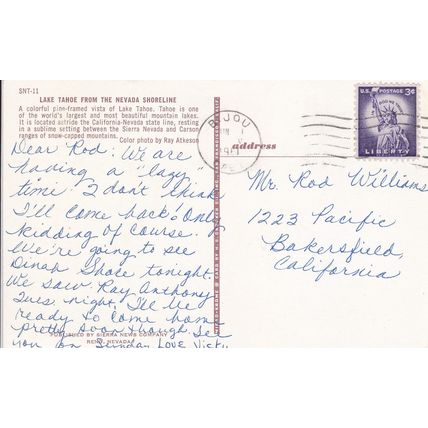 SNT-11
LAKE TAHOE FROM THE NEVADA SHORELINE
A colorful pine-framed vista of Lake Tahoe. Tahoe is one
of the world's largest and most beautiful mountain lakes.
It is located astride the California-Nevada state line, resting
in a sublime setting between the Sierra Nevada and Carson
ranges of snow-capped mountains.
Color photo by Ray Atkeson
Dear Rod: We are
having a "lazy"
time. I don't think
I'll come back. Only
kidding of course.
We're going to see
Dinah Shore tonight.
We saw Ray Anthony
Tues night. I'll be
ready to come home
pretty soon though. See
you on Sunday Love Vicky
PUBLISHED BY SIERRA NEWS COMPANY
RENO, NEVADA
BIJOU
address
U.S. POSTAGE 3¢
IN GOD WE TRUST
LIBERTY
Mr. Rod Williams
1223 Pacific
Bakersfield,
California